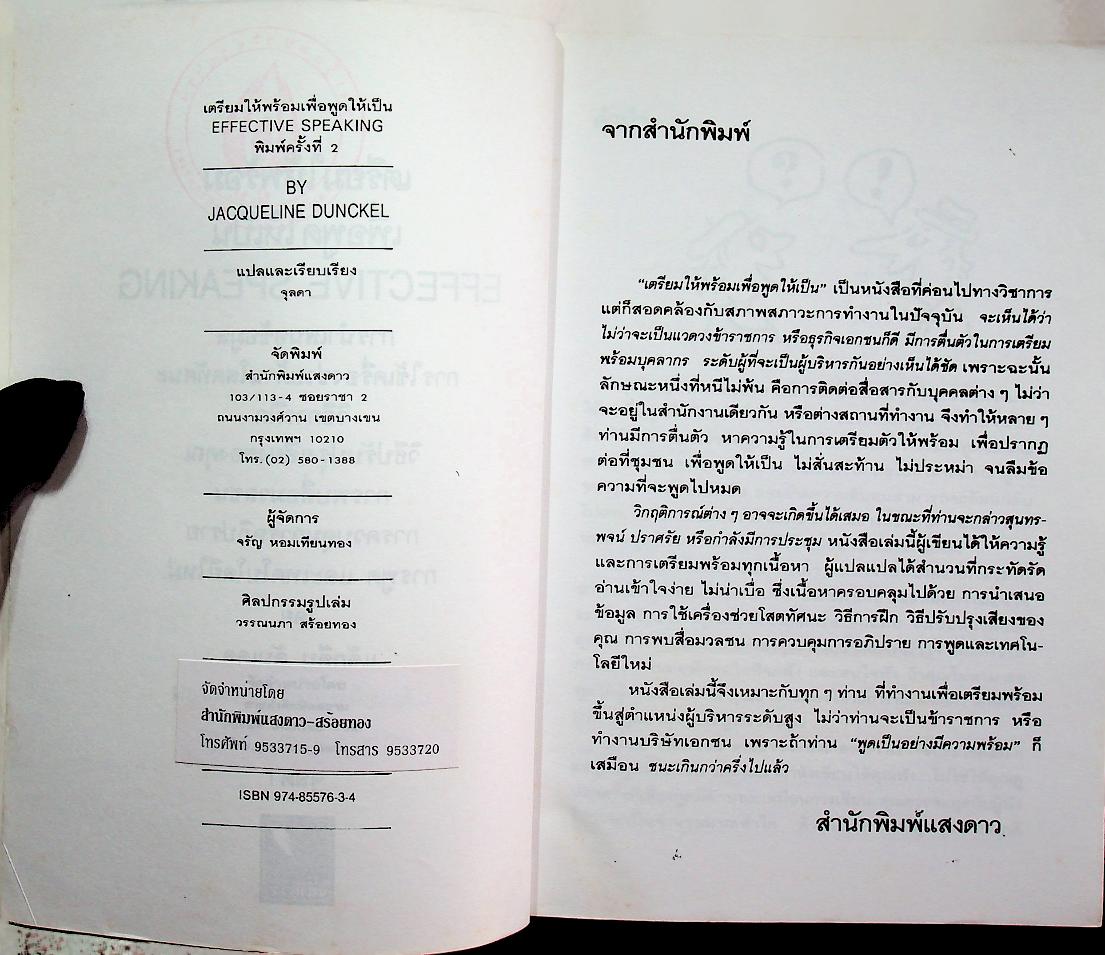 เตรียมให้พร้อมเพื่อพูดให้เป็น
EFFECTIVE SPEAKING
พิมพ์ครั้งที่ 2
BY
JACQUELINE DUNCKEL
แปลและเรียบเรียง
จุลดา
จัดพิมพ์
สำนักพิมพ์แสงดาว
103/113-4 ซอยราชา 2
ถนนงามวงศ์วาน เขตบางเขน
กรุงเทพฯ 10210
โทร.(02) 580-1388
ผู้จัดการ
จรัญ หอมเทียนทอง
ศิลปกรรมรูปเล่ม
วรรณนภา สร้อยทอง
จัดจำหน่ายโดย
สำนักพิมพ์แสงดาว-สร้อยทอง
โทรศัพท์ 9533715-9 โทรสาร 9533720
ISBN 974-85576-3-4
จากสำนักพิมพ์
"เตรียมให้พร้อมเพื่อพูดให้เป็น" เป็นหนังสือที่ค่อนไปทางวิชาการ
แต่ก็สอดคล้องกับสภาพสภาวะการทำงานในปัจจุบัน จะเห็นได้ว่า
ไม่ว่าจะเป็นแวดวงข้าราชการ หรือธุรกิจเอกชนก็ดี มีการตื่นตัวในการเตรียม
พร้อมบุคลากร ระดับผู้ที่จะเป็นผู้บริหารกันอย่างเห็นได้ชัด เพราะฉะนั้น
ลักษณะหนึ่งที่หนีไม่พ้น คือการติดต่อสื่อสารกับบุคคลต่าง ๆ ไม่ว่า
จะอยู่ในสำนักงานเดียวกัน หรือต่างสถานที่ทำงาน จึงทำให้หลาย ๆ
ท่านมีการตื่นตัว หาความรู้ในการเตรียมตัวให้พร้อม เพื่อปรากฏ
ต่อที่ชุมชน เพื่อพูดให้เป็น ไม่สั่นสะท้าน ไม่ประหม่า จนลืมข้อ
ความที่จะพูดไปหมด
วิกฤติการณ์ต่าง ๆ อาจจะเกิดขึ้นได้เสมอ ในขณะที่ท่านจะกล่าวสุนทร-
พจน์ ปราศรัย หรือกำลังมีการประชุม หนังสือเล่มนี้ผู้เขียนได้ให้ความรู้
และการเตรียมพร้อมทุกเนื้อหา ผู้แปลแปลได้สำนวนที่กระทัดรัด
อ่านเข้าใจง่าย ไม่น่าเบื่อ ซึ่งเนื้อหาครอบคลุมไปด้วย การนำเสนอ
ข้อมูล การใช้เครื่องช่วยโสตทัศนะ วิธีการฝึก วิธีปรับปรุงเสียงของ
คุณ การพบสื่อมวลชน การควบคุมการอภิปราย การพูดและเทคโน-
โลยีใหม่
หนังสือเล่มนี้จึงเหมาะกับทุก ๆ ท่าน ที่ทำงานเพื่อเตรียมพร้อม
ขึ้นสู่ตำแหน่งผู้บริหารระดับสูง ไม่ว่าท่านจะเป็นข้าราชการ หรือ
ทำงานบริษัทเอกชน เพราะถ้าท่าน "พูดเป็นอย่างมีความพร้อม" ก็
เสมือน ชนะเกินกว่าครึ่งไปแล้ว
สำนักพิมพ์แสงดาว